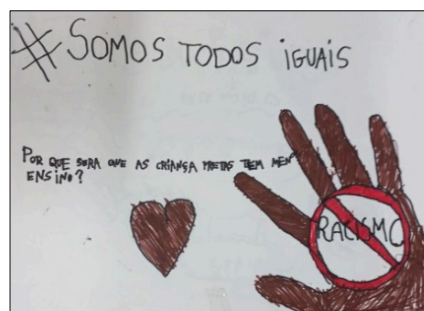 # SOMOS TODOS iGUAiS
POR QUE SERA QUE AS CRIANÇA PRETAS TEM MEN
ENSiNO?
RACISMO